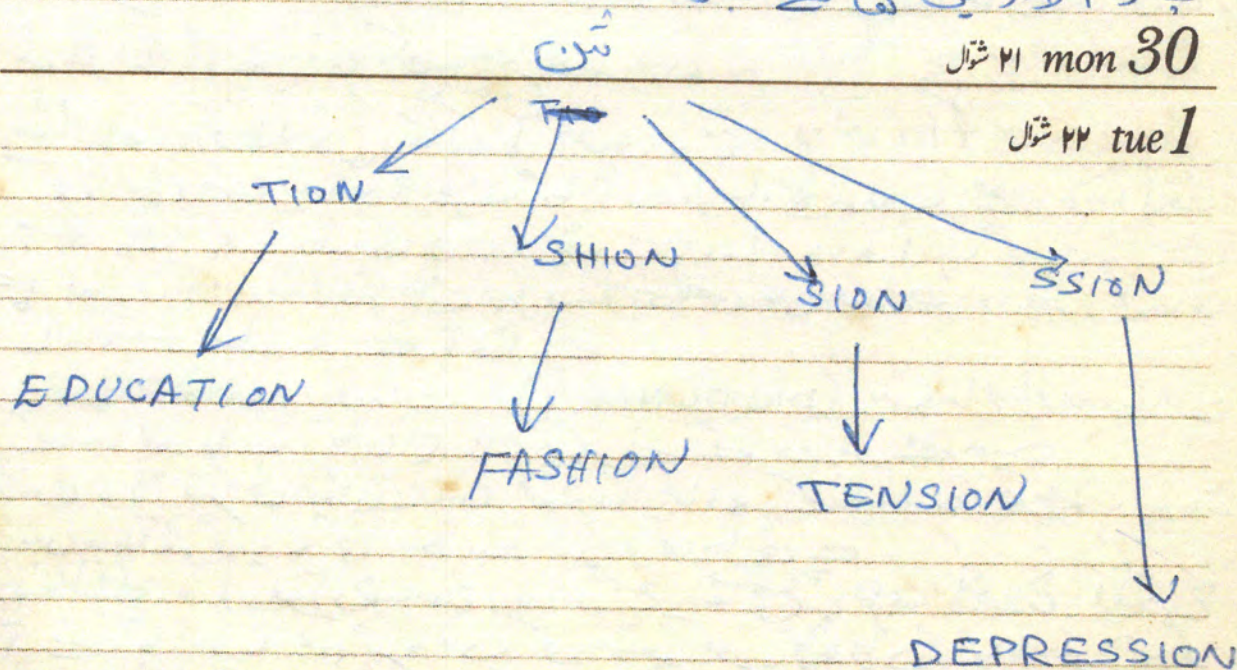 شن
mon 30 ۲۱ شوّال
tue 1 ۲۲ شوّال
TION
SHION
SION
SSION
EDUCATION
FASHION
TENSION
DEPRESSION